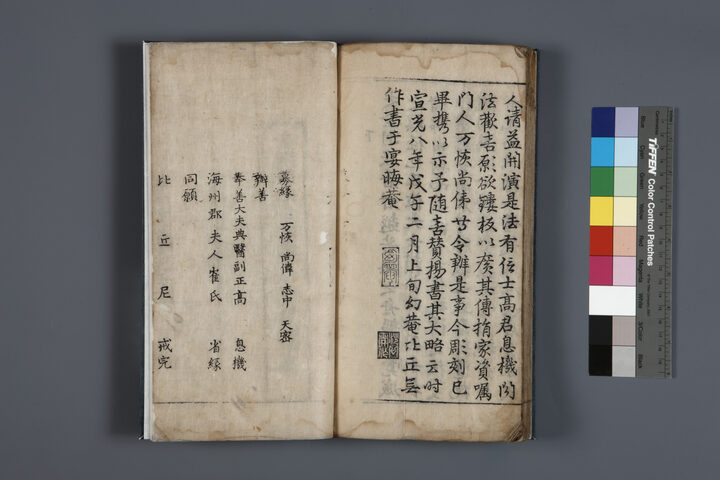 人請益開演是法有信士高君息機聞
法歡喜欲鏤板以廣其傳捐家資囑
門人万恢尚令辦是事今彫刻已
畢携以示予隨喜賛揚書其大略云時
宣光八年戊午二月上旬幻菴比丘
作書于宴晦菴
募緣 万恢 尚偉 志中 天密
辦善
奉善大夫典醫副正高 息機
海州郡夫人崔氏 省緣
同願
比丘尼 戒完
TIFFEN Color Control Patches
Blue
Cyan
Green
Yellow
Red
Magenta
White
3/Color
Black